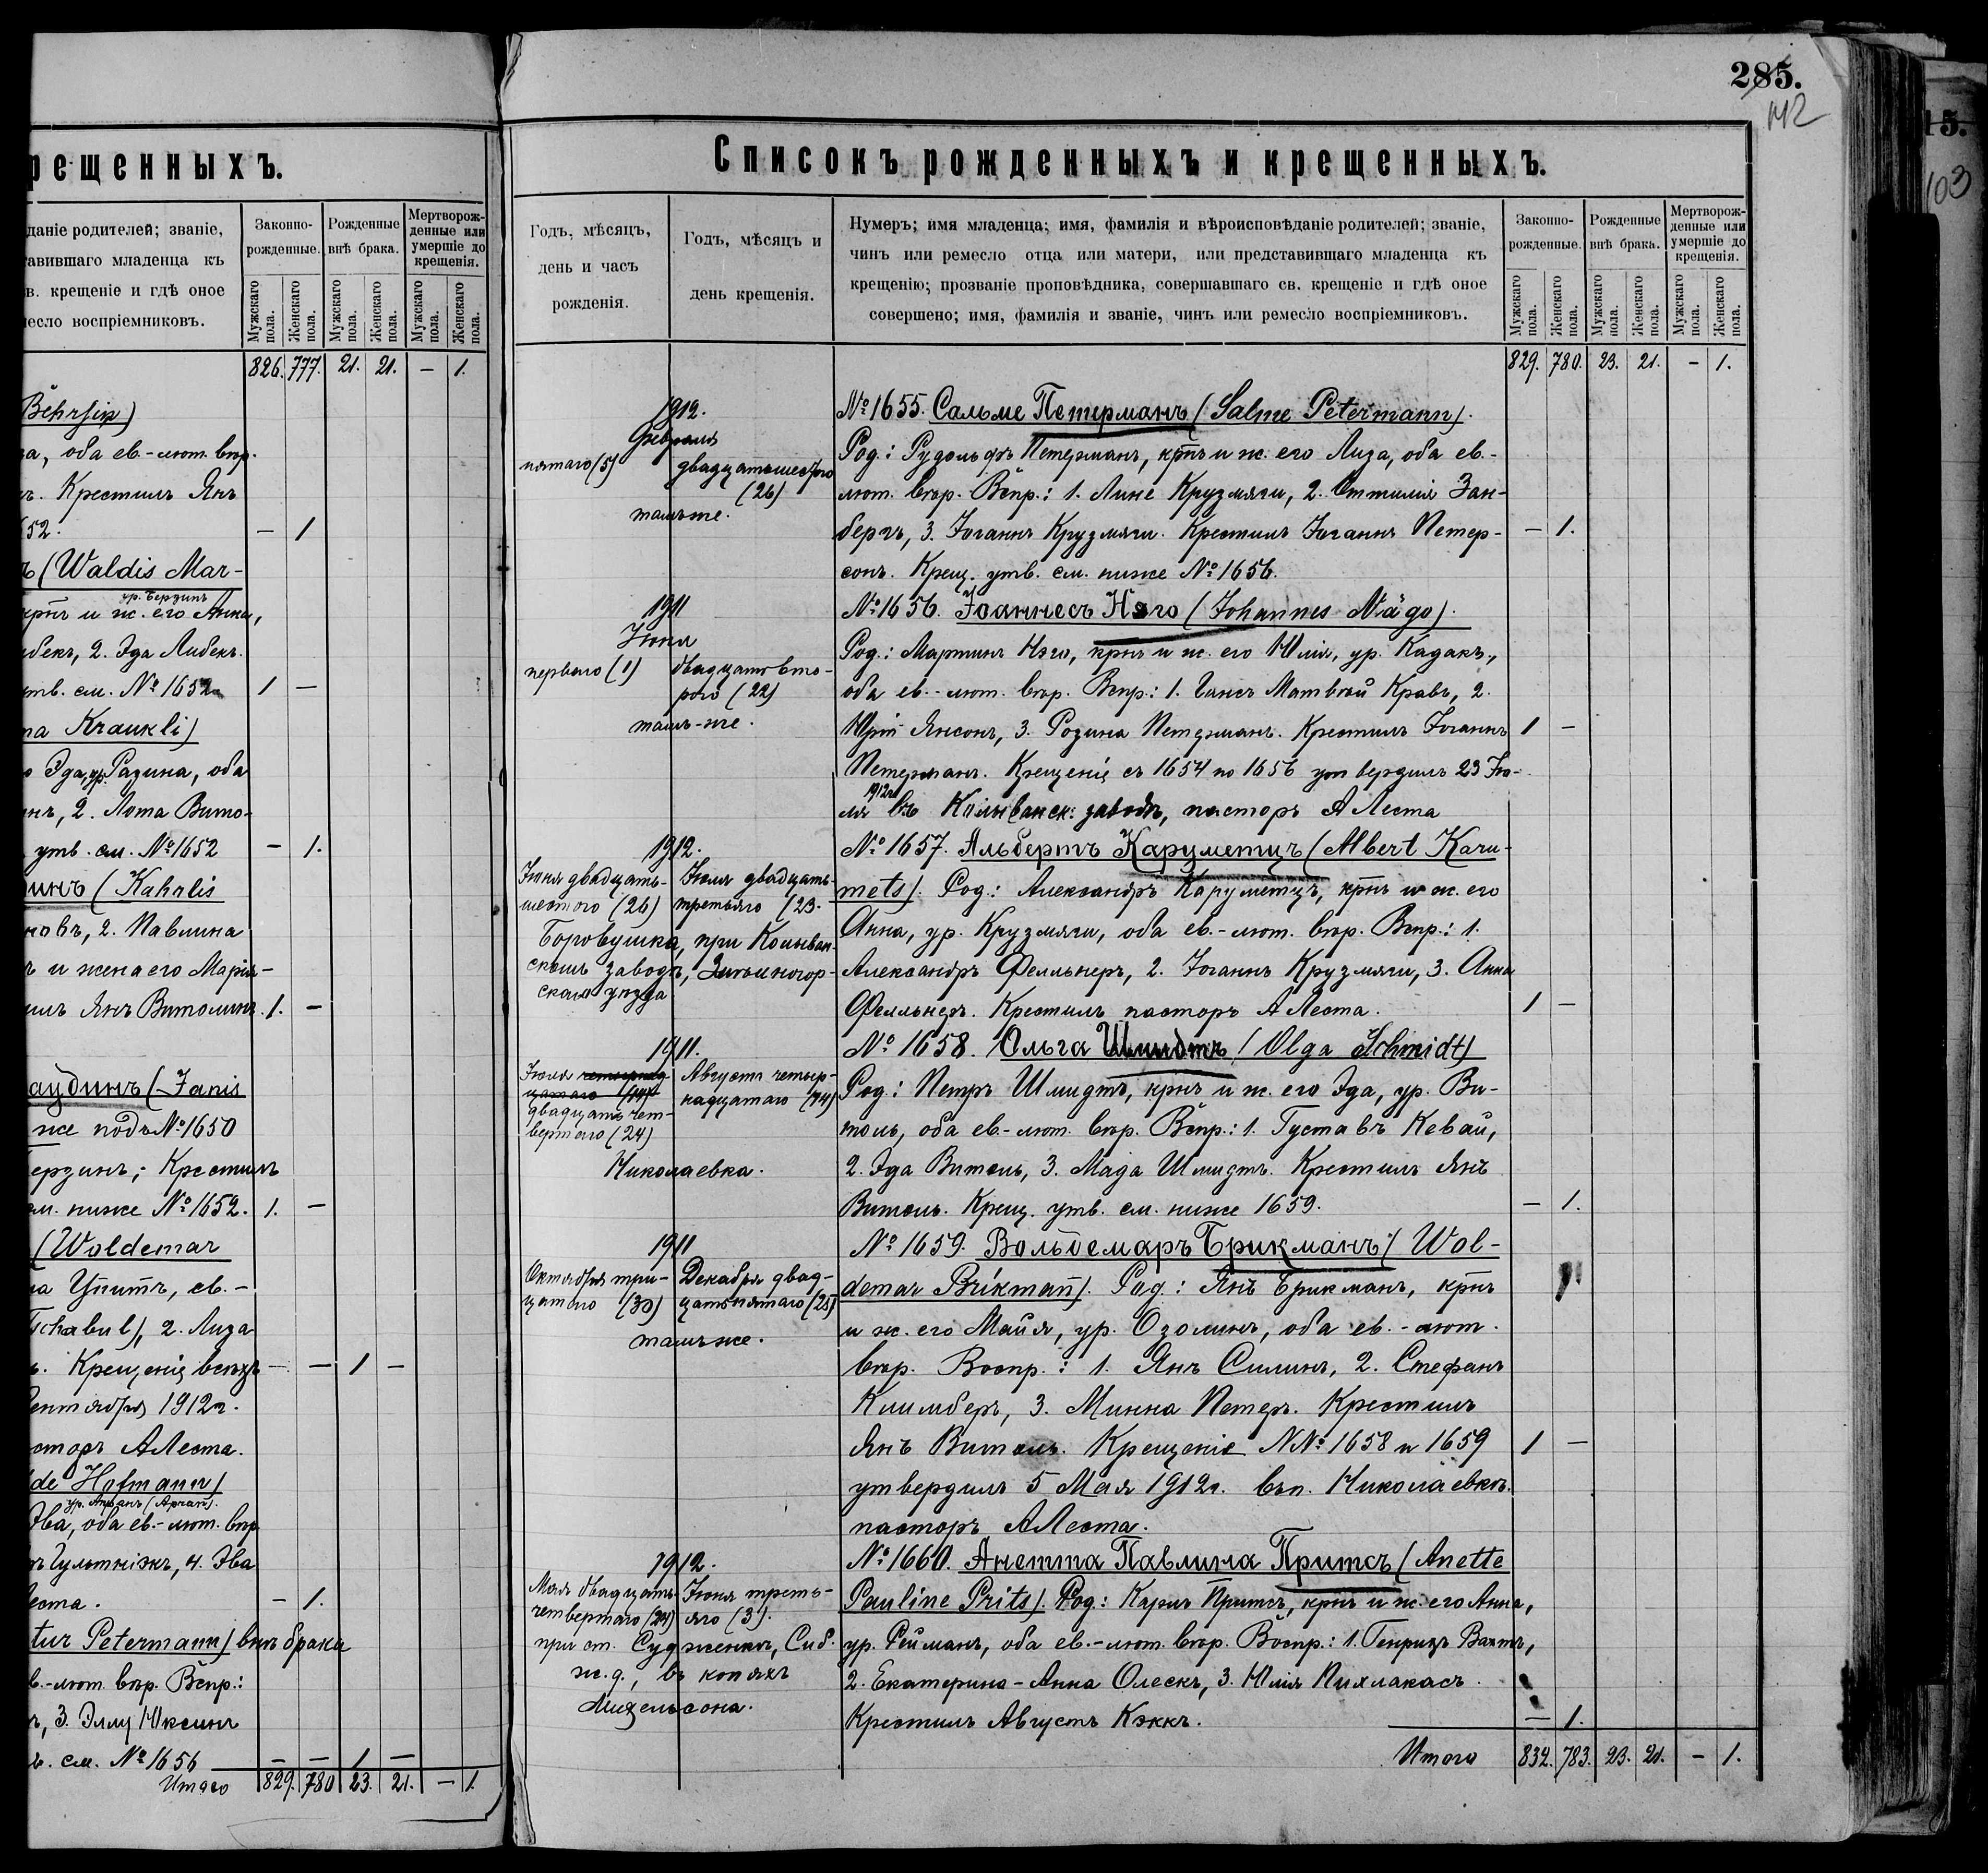 рещенныхъ.
даніе родителей; званіе,
тавившаго младенца къ
в. крещеніе и гдѣ оное
месло воспріемниковъ.
Законно-
рожденные.
Рожденные
внѣ брака.
Мертворож-
денные или
умершіе до
крещенія.
Мужскаго пола.
Женскаго пола.
Мужскаго пола.
Женскаго пола.
Мужскаго пола.
Женскаго пола.
826. 777. 21. 21. – 1.
Behrsin)
а, оба ев.-лют. вѣр.
Крестилъ Янъ
652. – 1
(Waldis Mar-
ур. Берзинъ
крнъ и ж. его Анна,
2. Эда Либекъ.
утв. см. № 1652 1 –
na Kraukli)
Эда, ур. Разина, оба
2. Лота Вито-
утв. см. № 1652 – 1.
(Kahrlis
2. Павлина
и жена его Марія-
Янъ Витолинъ. 1. –
аудинъ (Janis
же подъ № 1650
Крестилъ
см. ниже № 1652. 1. –
(Woldemar
Упитъ, ев.-
Tschabul), 2. Лиза
Крещеніе всѣхъ – – 1 –
Сентября 1912 г.
пасторъ А Леста.
de Hofmann)
Эва, оба ев.-лют. вѣр.
4. Эва
Леста. – 1.
tur Petermann) внѣ брака
ев.-лют. вѣр. Вспр.:
3. Эллу Юксинъ
см. № 1656 – – 1 –
Итого 829. 780 23. 21. – 1.
285.
142
Списокъ рожденныхъ и крещенныхъ.
Годъ, мѣсяцъ,
день и часъ
рожденія.
Годъ, мѣсяцъ и
день крещенія.
Нумеръ; имя младенца; имя, фамилія и вѣроисповѣданіе родителей; званіе,
чинъ или ремесло отца или матери, или представившаго младенца къ
крещенію; прозваніе проповѣдника, совершавшаго св. крещеніе и гдѣ оное
совершено; имя, фамилія и званіе, чинъ или ремесло воспріемниковъ.
Законно-
рожденные.
Рожденные
внѣ брака.
Мертворож-
денные или
умершіе до
крещенія.
Мужскаго пола.
Женскаго пола.
Мужскаго пола.
Женскаго пола.
Мужскаго пола.
Женскаго пола.
829. 780. 23. 21. – 1.
1912.
Февраля
пятаго (5) двадцатьшестого
(26)
тамъже.
№ 1655. Сальме Петерманъ (Salme Petermann).
Род.: Рудольфъ Петерманъ, крнъ и ж. его Лиза, оба ев.-
лют. вѣр. Вспр.: 1. Лине Крузмяги, 2. Оттилія Зан-
бергъ, 3. Іоганнъ Крузмяги. Крестилъ Іоганнъ Петер- – 1.
сонъ. Крещ. утв. см. ниже № 1656.
1911
Іюня
перваго (1) двадцать вто-
рого (22)
тамъ-же.
№ 1656. Іоаннесъ Нэго (Johannes Nägo).
Род.: Мартинъ Нэго, крнъ и ж. его Юлія, ур. Кадакъ,
оба ев.-лют. вѣр. Вспр.: 1. Гансъ Матвѣй Кравъ, 2.
Юрій Янсонъ, 3. Розина Петерманъ. Крестилъ Іоганнъ 1 –
Петерманъ. Крещенія съ 1654 по 1656 утвердилъ 23 Ію-
ля 1912 г. въ Колыванск: заводѣ, пасторъ А Леста
1912.
Іюня двадцать-
шестого (26)
Іюля двадцать-
третьяго (23.
Боровушка, при Колыван-
скомъ заводѣ, Змѣиногор-
скаго уѣзда
№ 1657. Альбертъ Каруметцъ (Albert Karu-
mets). Род.: Александръ Каруметцъ, крнъ и ж. его
Анна, ур. Крузмяги, оба ев.-лют. вѣр. Вспр.: 1.
Александръ Фелльнеръ, 2. Іоганнъ Крузмяги, 3. Анна
Фелльнеръ. Крестилъ пасторъ А Леста. 1 –
1911.
Іюля четырнад-
цатаго (14)
двадцать чет-
вертаго (24)
Августа четыр-
надцатаго (14)
Николаевка.
№ 1658. Ольга Шмидтъ (Olga Schmidt)
Род.: Петръ Шмидтъ, крнъ и ж. его Эда, ур. Ви-
толь, оба ев.-лют. вѣр. Вспр.: 1. Густавъ Кевай,
2. Эда Витоль, 3. Мада Шмидтъ. Крестилъ Янъ
Витоль. Крещ. утв. см. ниже 1659. – 1.
1911
Октября три-
цатаго (30)
Декабря двад-
цатьпятаго (25)
тамъже.
№ 1659. Вольдемаръ Брикманъ (Wol-
demar Brikman). Род.: Янъ Брикманъ, крнъ
и ж. его Майя, ур. Озолинъ, оба ев.-лют.
вѣр. Воспр.: 1. Янъ Силинъ, 2. Стефанъ
Климберъ, 3. Минна Петеръ. Крестилъ
Янъ Витоль. Крещеніе NNo 1658 и 1659 1 –
утвердилъ 5 Мая 1912 г. въ п. Николаевкѣ.
пасторъ А Леста.
1912.
Мая двадцать-
четвертаго (24)
Іюня треть-
яго (3).
при ст. Судженкѣ, Сиб.
ж.д., въ копяхъ
Михельсона.
№ 1660. Анетта Павлина Притсъ (Anette
Pauline Prits). Род.: Карлъ Притсъ, крнъ и ж. его Анна,
ур. Рейманъ, оба ев.-лют. вѣр. Воспр.: 1. Генрихъ Вахтъ,
2. Екатерина-Анна Олескъ, 3. Юлія Пихлакасъ.
Крестилъ Августъ Кэккъ. – 1.
Итого 832. 783. 23. 21. – 1.
15.
103